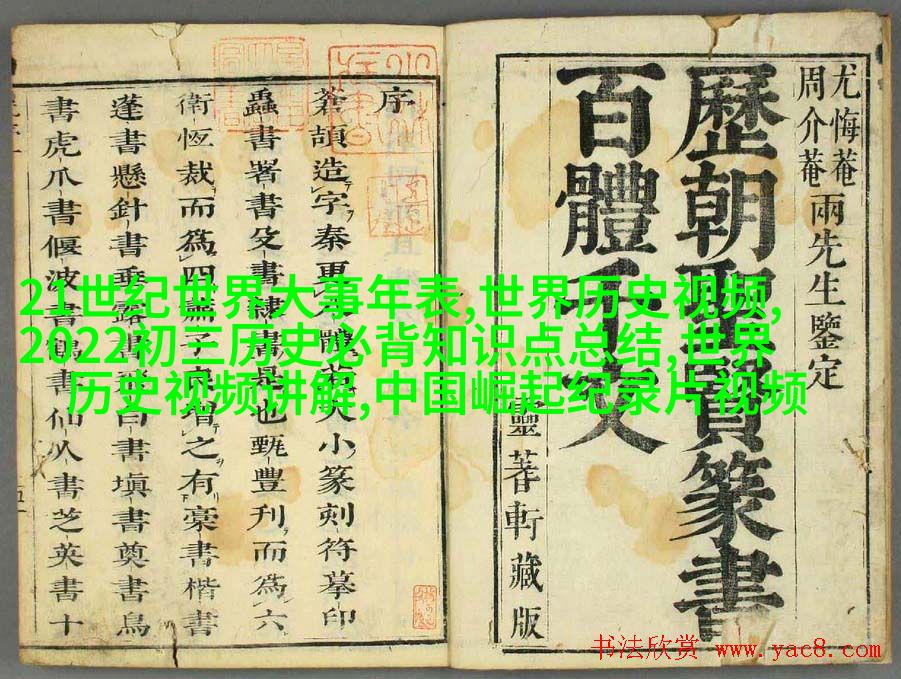 尤悔菴
周介菴
兩先生鑒定
歷朝聖賢篆書
百體千文
靈蓍軒藏版
序
蒼頡造字秦更八體蕭興小篆刻符摹印
蟲書署書殳書隸書是也甄豐刋而為六
衛恆裁而為四
之有豪書楷書
蓬書懸針書垂露書
書塡書奠書鳥
書虎爪書偃波書鶴書
仙人書芝英書十
21世纪世界大事年表,世界历史视频,
2022初三历史必背知识点总结,世界
历史视频讲解,中国崛起纪录片视频
书法欣赏 www.yac8.com